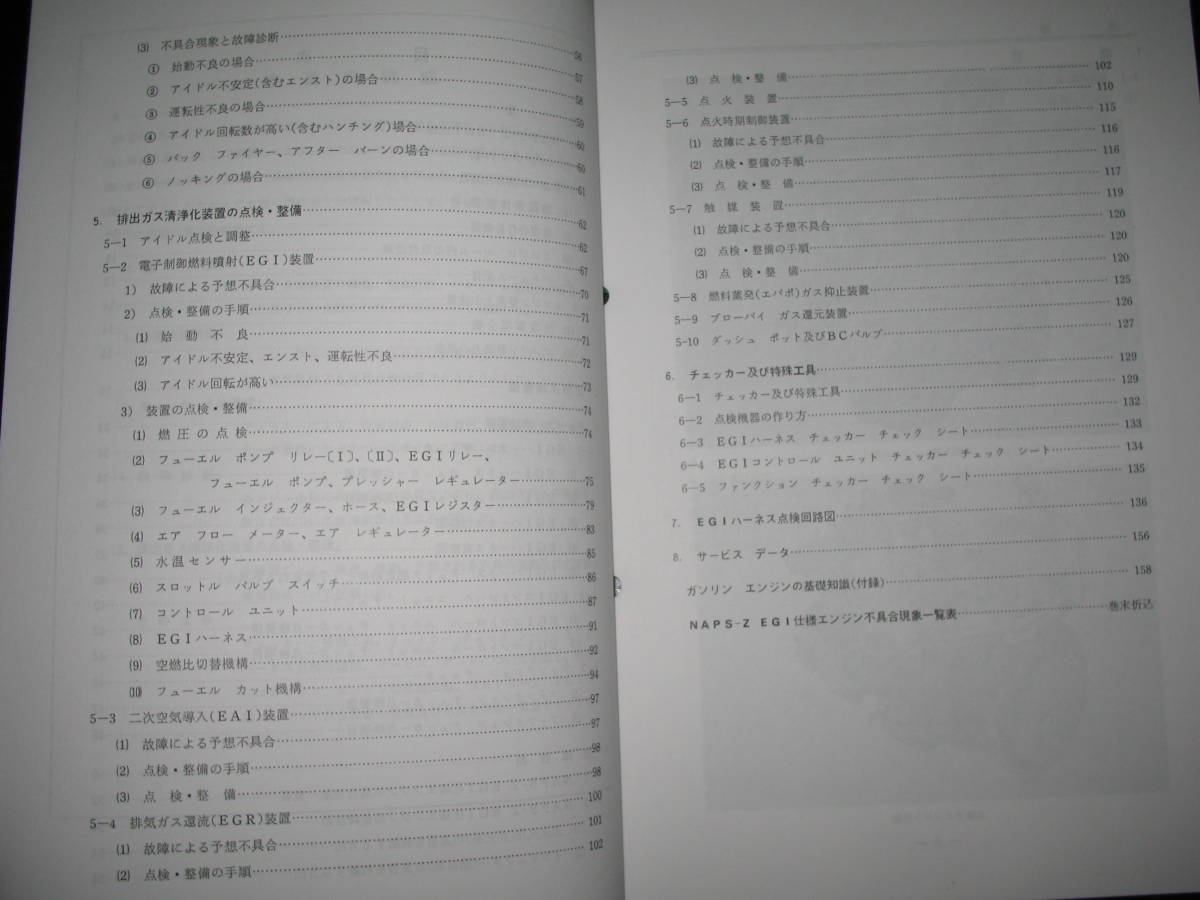 (3) 不具合現象と故障診断……56
① 始動不良の場合……57
② アイドル不安定(含むエンスト)の場合……58
③ 運転性不良の場合……59
④ アイドル回転数が高い(含むハンチング)場合……60
⑤ バック ファイヤー、アフター バーンの場合……60
⑥ ノッキングの場合……61
5. 排出ガス清浄化装置の点検・整備……62
5―1 アイドル点検と調整……62
5―2 電子制御燃料噴射(EGI)装置……67
1) 故障による予想不具合……70
2) 点検・整備の手順……71
(1) 始動不良……71
(2) アイドル不安定、エンスト、運転性不良……72
(3) アイドル回転が高い……73
3) 装置の点検・整備……74
(1) 燃圧の点検……74
(2) フューエル ポンプ リレー〔I〕、〔II〕、EGIリレー、
フューエル ポンプ、プレッシャー レギュレーター……75
(3) フューエル インジェクター、ホース、EGIレジスター……79
(4) エア フロー メーター、エア レギュレーター……83
(5) 水温センサー……85
(6) スロットル バルブ スイッチ……86
(7) コントロール ユニット……87
(8) EGIハーネス……91
(9) 空燃比切替機構……92
(10) フューエル カット機構……94
5―3 二次空気導入(EAI)装置……97
(1) 故障による予想不具合……97
(2) 点検・整備の手順……98
(3) 点検・整備……98
5―4 排気ガス還流(EGR)装置……100
(1) 故障による予想不具合……101
(2) 点検・整備の手順……102
(3) 点検・整備……102
5―5 点火装置……110
5―6 点火時期制御装置……115
(1) 故障による予想不具合……116
(2) 点検・整備の手順……116
(3) 点検・整備……117
5―7 触媒装置……119
(1) 故障による予想不具合……120
(2) 点検・整備の手順……120
(3) 点検・整備……120
5―8 燃料蒸発(エバポ)ガス抑止装置……125
5―9 ブローバイ ガス還元装置……126
5-10 ダッシュ ポット及びBCバルブ……127
6. チェッカー及び特殊工具……129
6―1 チェッカー及び特殊工具……129
6―2 点検機器の作り方……132
6―3 EGIハーネス チェッカー チェック シート……133
6―4 EGIコントロール ユニット チェッカー チェック シート……134
6―5 ファンクション チェッカー チェック シート……135
7. EGIハーネス点検回路図……136
8. サービス データ……156
ガソリン エンジンの基礎知識(付録)……158
NAPS-Z EGI仕様エンジン不具合現象一覧表……巻末折込